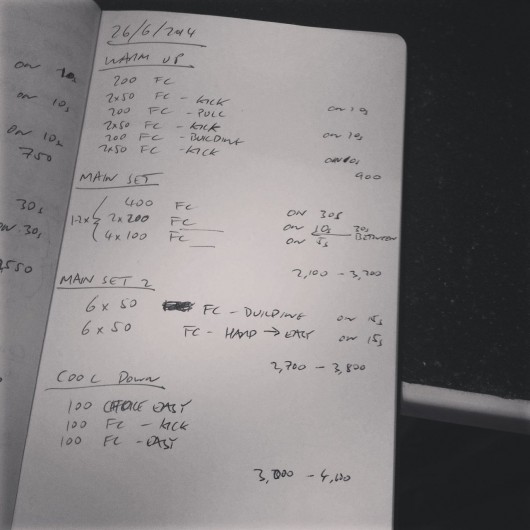 on 10s
on 10s
on 10s
750
30s
on 30s
3,550
26/6/2014
WARM UP
200 FC
2x50 FC - KICK on 10s
200 FC - PULL
2x50 FC - KICK on 10s
200 FC - BUILDING
2x50 FC - KICK on 10s
900
MAIN SET
400 FC on 30s
1-2x 2x200 FC on 10s 30s BETWEEN
4x100 FC on 5s
2,100 - 3,300
MAIN SET 2
6x50 FC - BUILDING on 15s
6x50 FC - HARD → EASY on 15s
2,700 - 3,800
COOL DOWN
100 CHOICE EASY
100 FC - KICK
100 FC - EASY
3,000 - 4,100